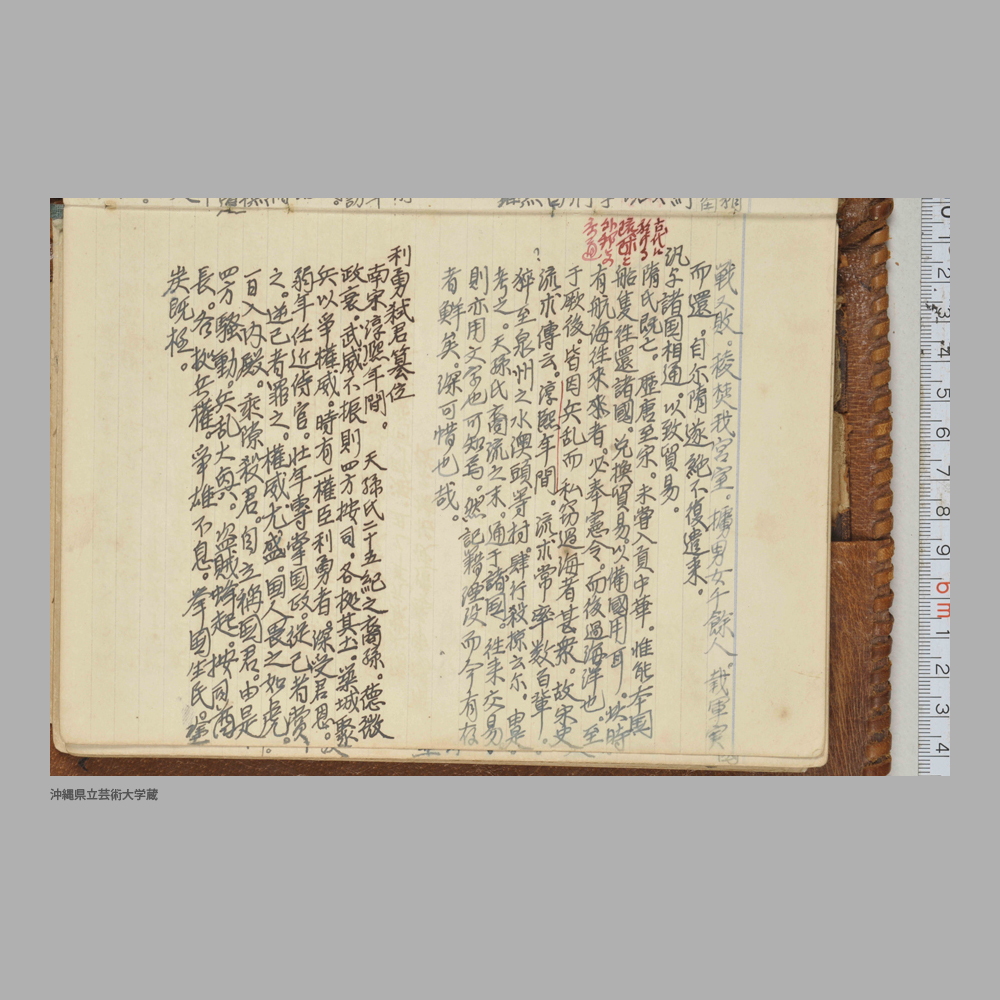 戰又敗。稜焚我宮室。擄男女千餘人。載軍實
而還。自尓隋遂絶不復遣来。
汎与諸国相通。以致貿易。
隋氏既亡。歴唐至宋。未嘗入貢中華。惟能本國
船隻往還諸國。兌換貿易以備國用耳。此時
有航海往來來者。必奉憲令。而後過海洋也。至
于厥後。皆因兵乱而私窃過海者甚衆。故宋史
流求傳云。淳熙年間。流求常率数百輩。
猝至泉州之水澳頭等村。肆行殺掠云尓。由是
考之。天孫氏裔流之末。通于諸國。往来交易。
則亦用文字也可知焉。然記籍湮没而今有存
者鮮矣。深可惜也哉。
古代に
於ける
琉球と
外邦との
交通
?
利勇弑君簒位
南宋淳熙年間。天孫氏二十五紀之裔孫。德微
政衰。武威不振則四方按司。各據其土。築城聚
兵以争權威。時有一權臣利勇者。深受君恩。
弱年任近侍官。壮年專掌国政。從己者賞
之。逆己者罪之。權威尤盛。国人畏之如虎。
一日入内殿。乘隙殺君。自立稱国君。由是
四方騒動。兵乱大興。盗賊蜂起。按司酋
長。各投兵權。爭雄不息。挙国生民塗
炭既極。
0 1 2 3 4 5 6 7 8 9 6m 1 2 3 4
沖縄県立芸術大学蔵